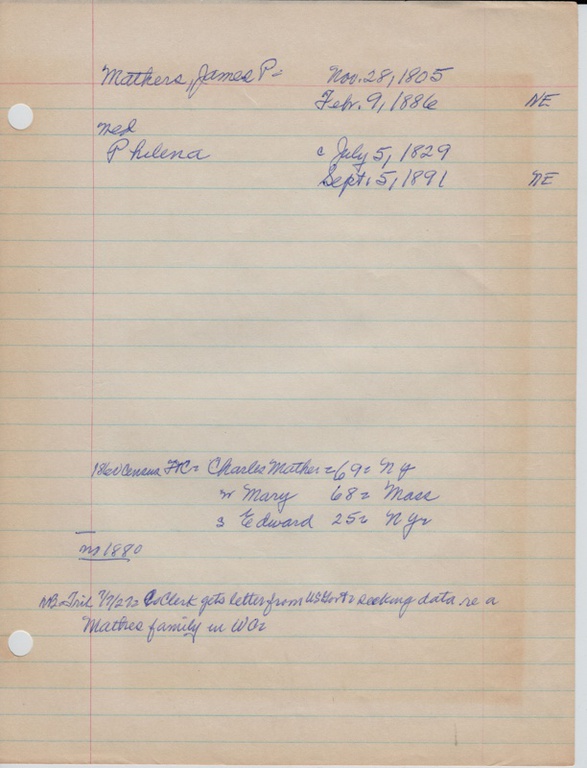 Mathers, James P- Nov. 28, 1805
Febr. 9, 1886 NE
med
Philena c July 5, 1829
Sept. 5, 1891 NE
1860 Census = Charles Mather = 69 = NY
w Mary 68 = Mass
s Edward 25 = NY
m 1880
Trib 7/7/27 = Co Clerk gets letter from US Govt = seeking data re a
Mathes family in WC =